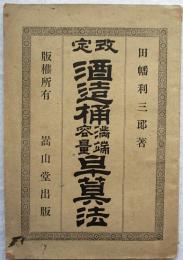 改定
田幡利三郎著
酒造桶満端容量早算法
版権所有
嵩山堂出版